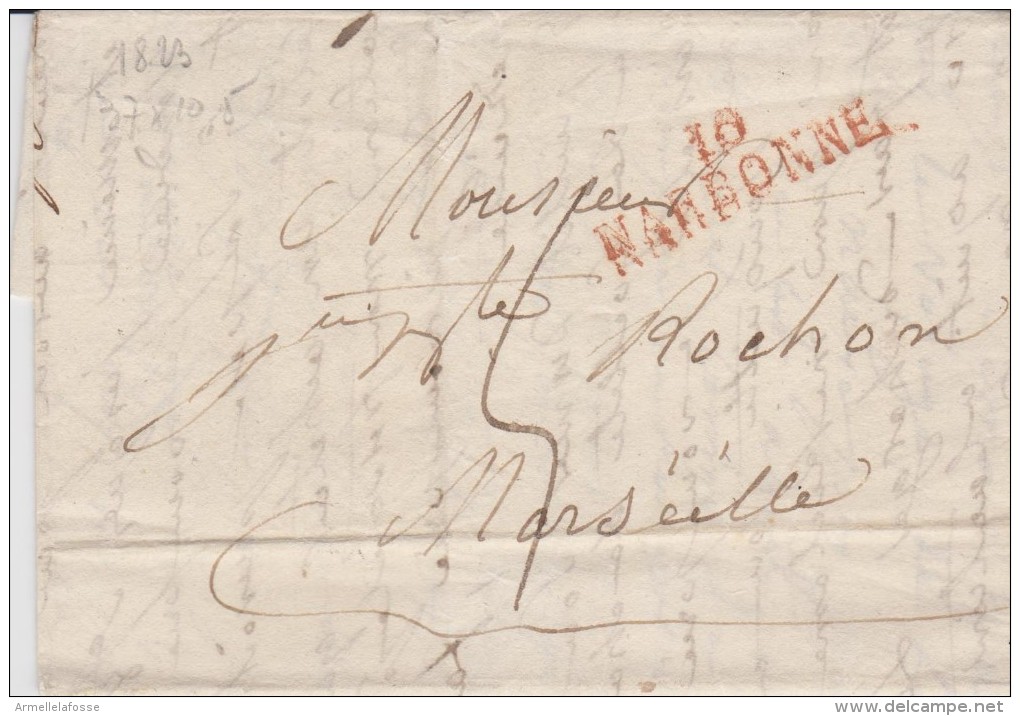 1823
37 x 10,5
10
NARBONNE
Monsieur
Rochon
5
Marseille
Armellelafosse
www.delcampe.net